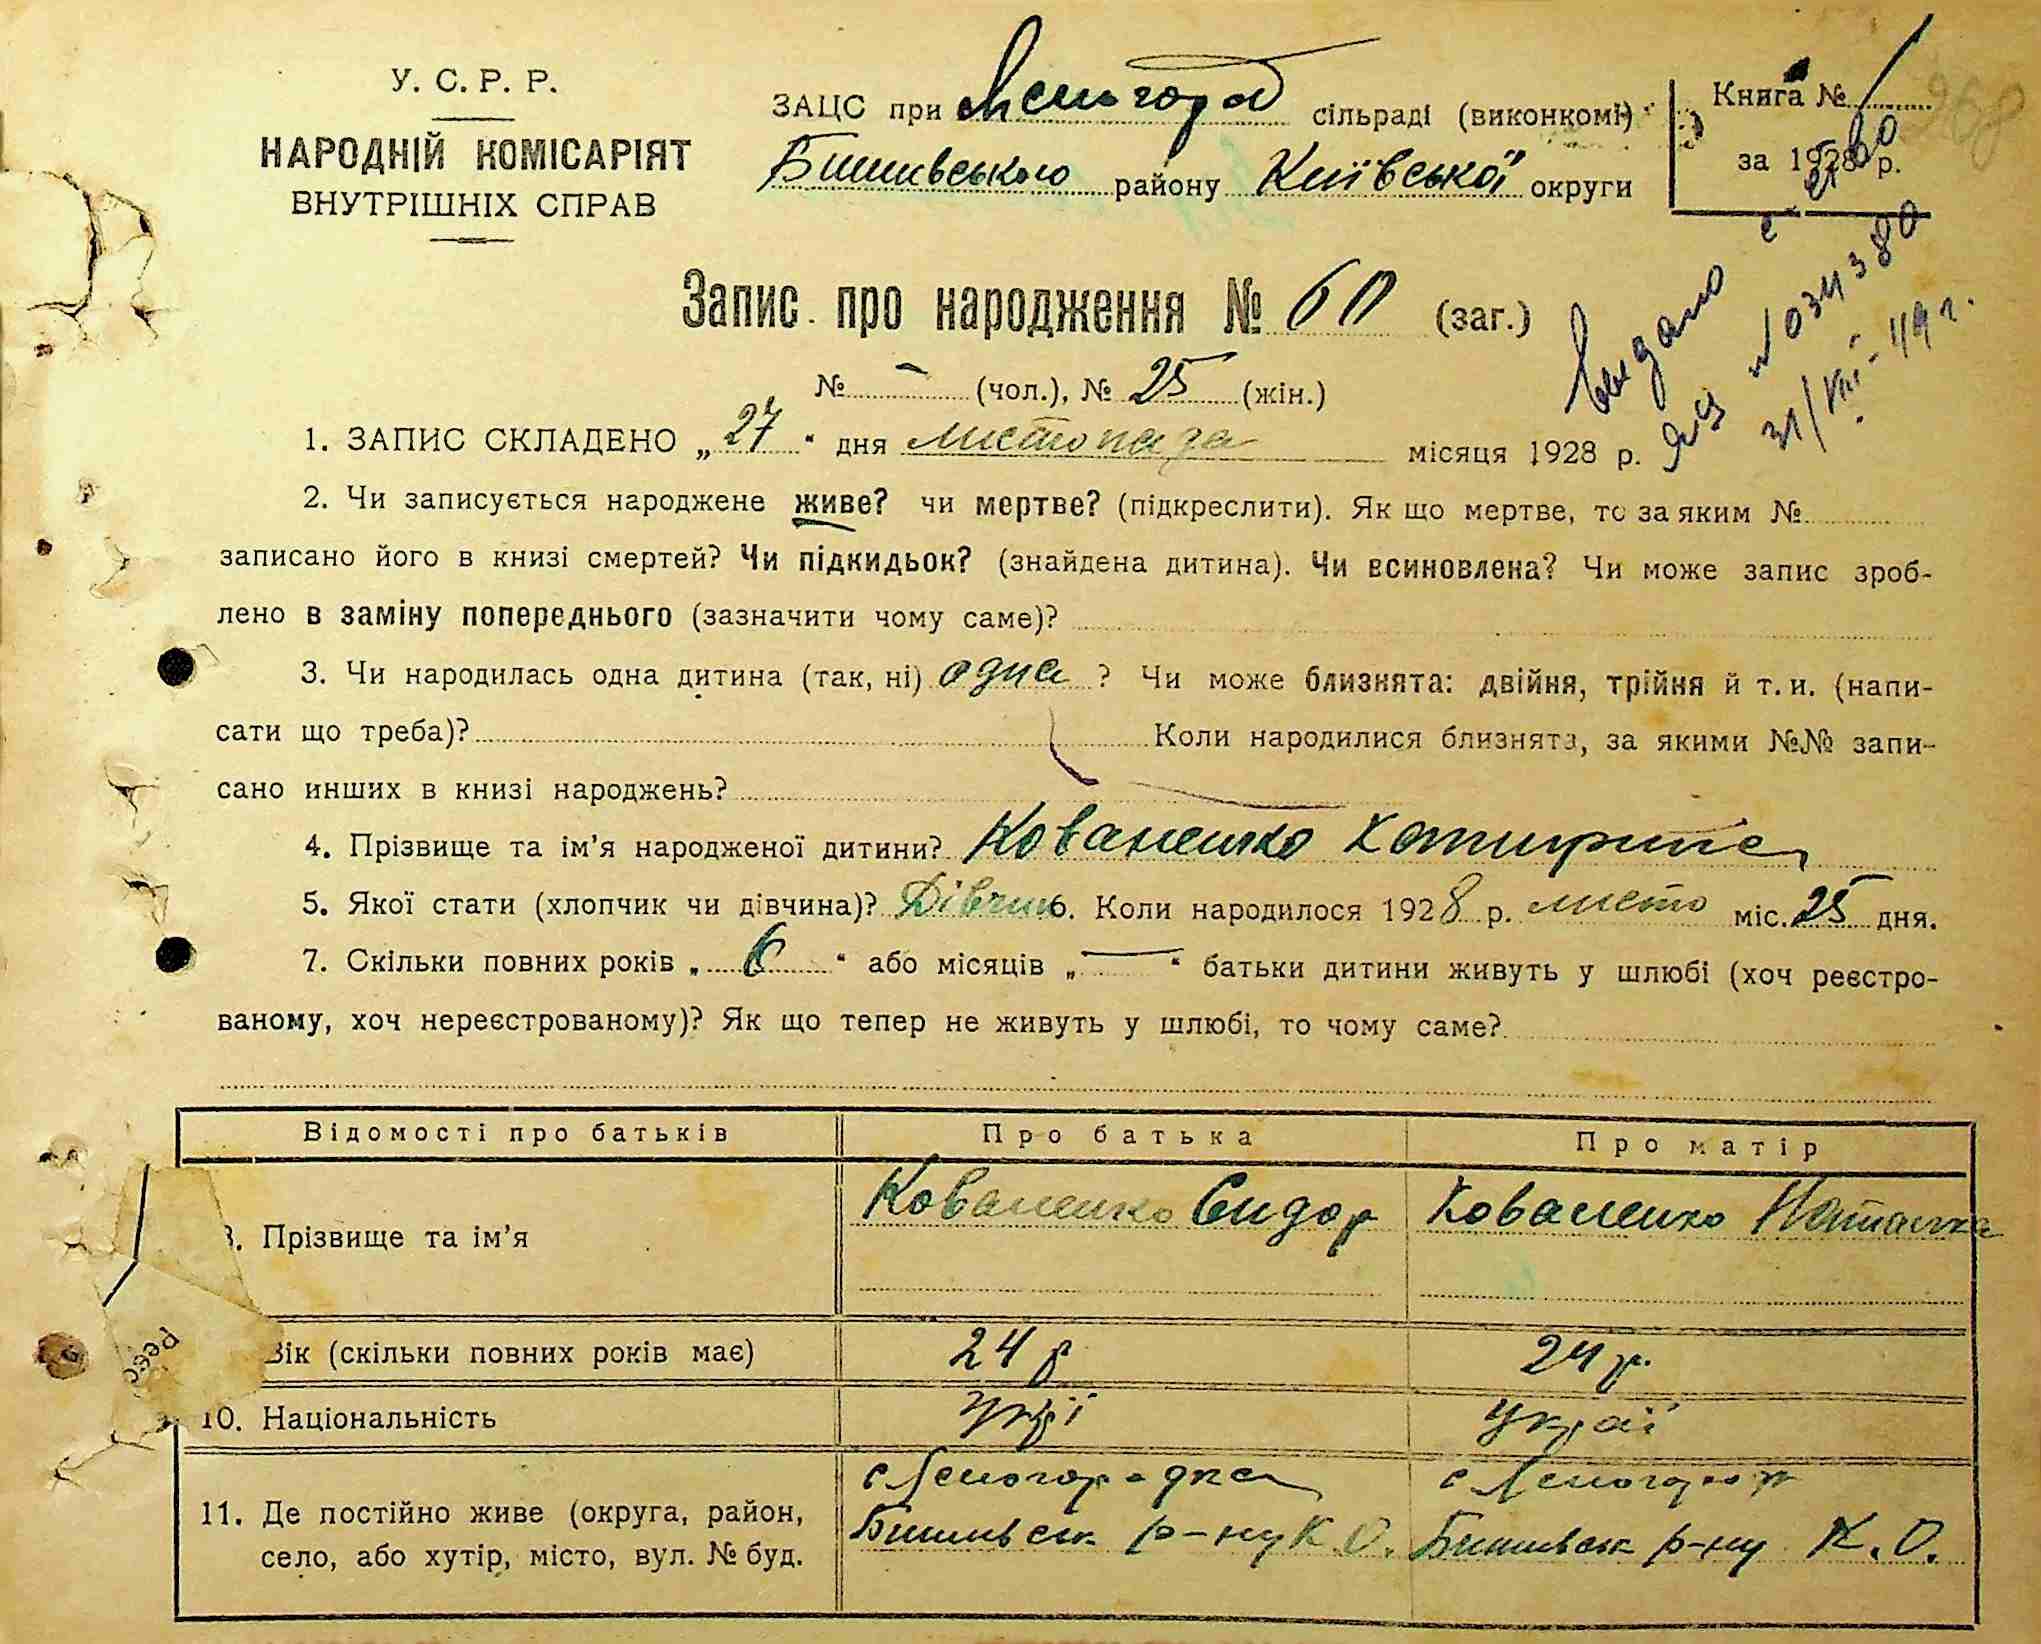 У. С. Р. Р.
НАРОДНІЙ КОМІСАРІЯТ
ВНУТРІШНІХ СПРАВ
ЗАЦС при сільраді (виконкомі)
Бишівського району Київської округи
Книга № 1
за 1928 р.
268
Запис про народження № 60 (заг.)
№ – (чол.), № 25 (жін.)
видано
034380
31/VIII-49 г.
1. ЗАПИС СКЛАДЕНО „27“ дня листопада місяця 1928 р.
2. Чи записується народжене живе? чи мертве? (підкреслити). Як що мертве, то за яким №
записано його в книзі смертей? Чи підкидьок? (знайдена дитина). Чи всиновлена? Чи може запис зроб-
лено в заміну попереднього (зазначити чому саме)?
3. Чи народилась одна дитина (так, ні) одна ? Чи може близнята: двійня, трійня й т. и. (напи-
сати що треба)? Коли народилися близнята, за якими №№ запи-
сано инших в книзі народжень?
4. Прізвище та ім’я народженої дитини? Коваленко Катирина
5. Якої стати (хлопчик чи дівчина)? Дівчин 6. Коли народилося 1928 р. листо міс. 25 дня.
7. Скільки повних років „ 6 “ або місяців „ — “ батьки дитини живуть у шлюбі (хоч реєстро-
ваному, хоч нереєстрованому)? Як що тепер не живуть у шлюбі, то чому саме?
Відомості про батьків Про батька Про матір
8. Прізвище та ім’я Коваленко Сидор Коваленко Наталка
Вік (скільки повних років має) 24 р 24 р.
Реєс
10. Національність Укрї Украї
11. Де постійно живе (округа, район, село, або хутір, місто, вул. № буд.
с Лісногородка
Бишивськ р-ну К. О.
с
Бишивськ р-ну К. О.